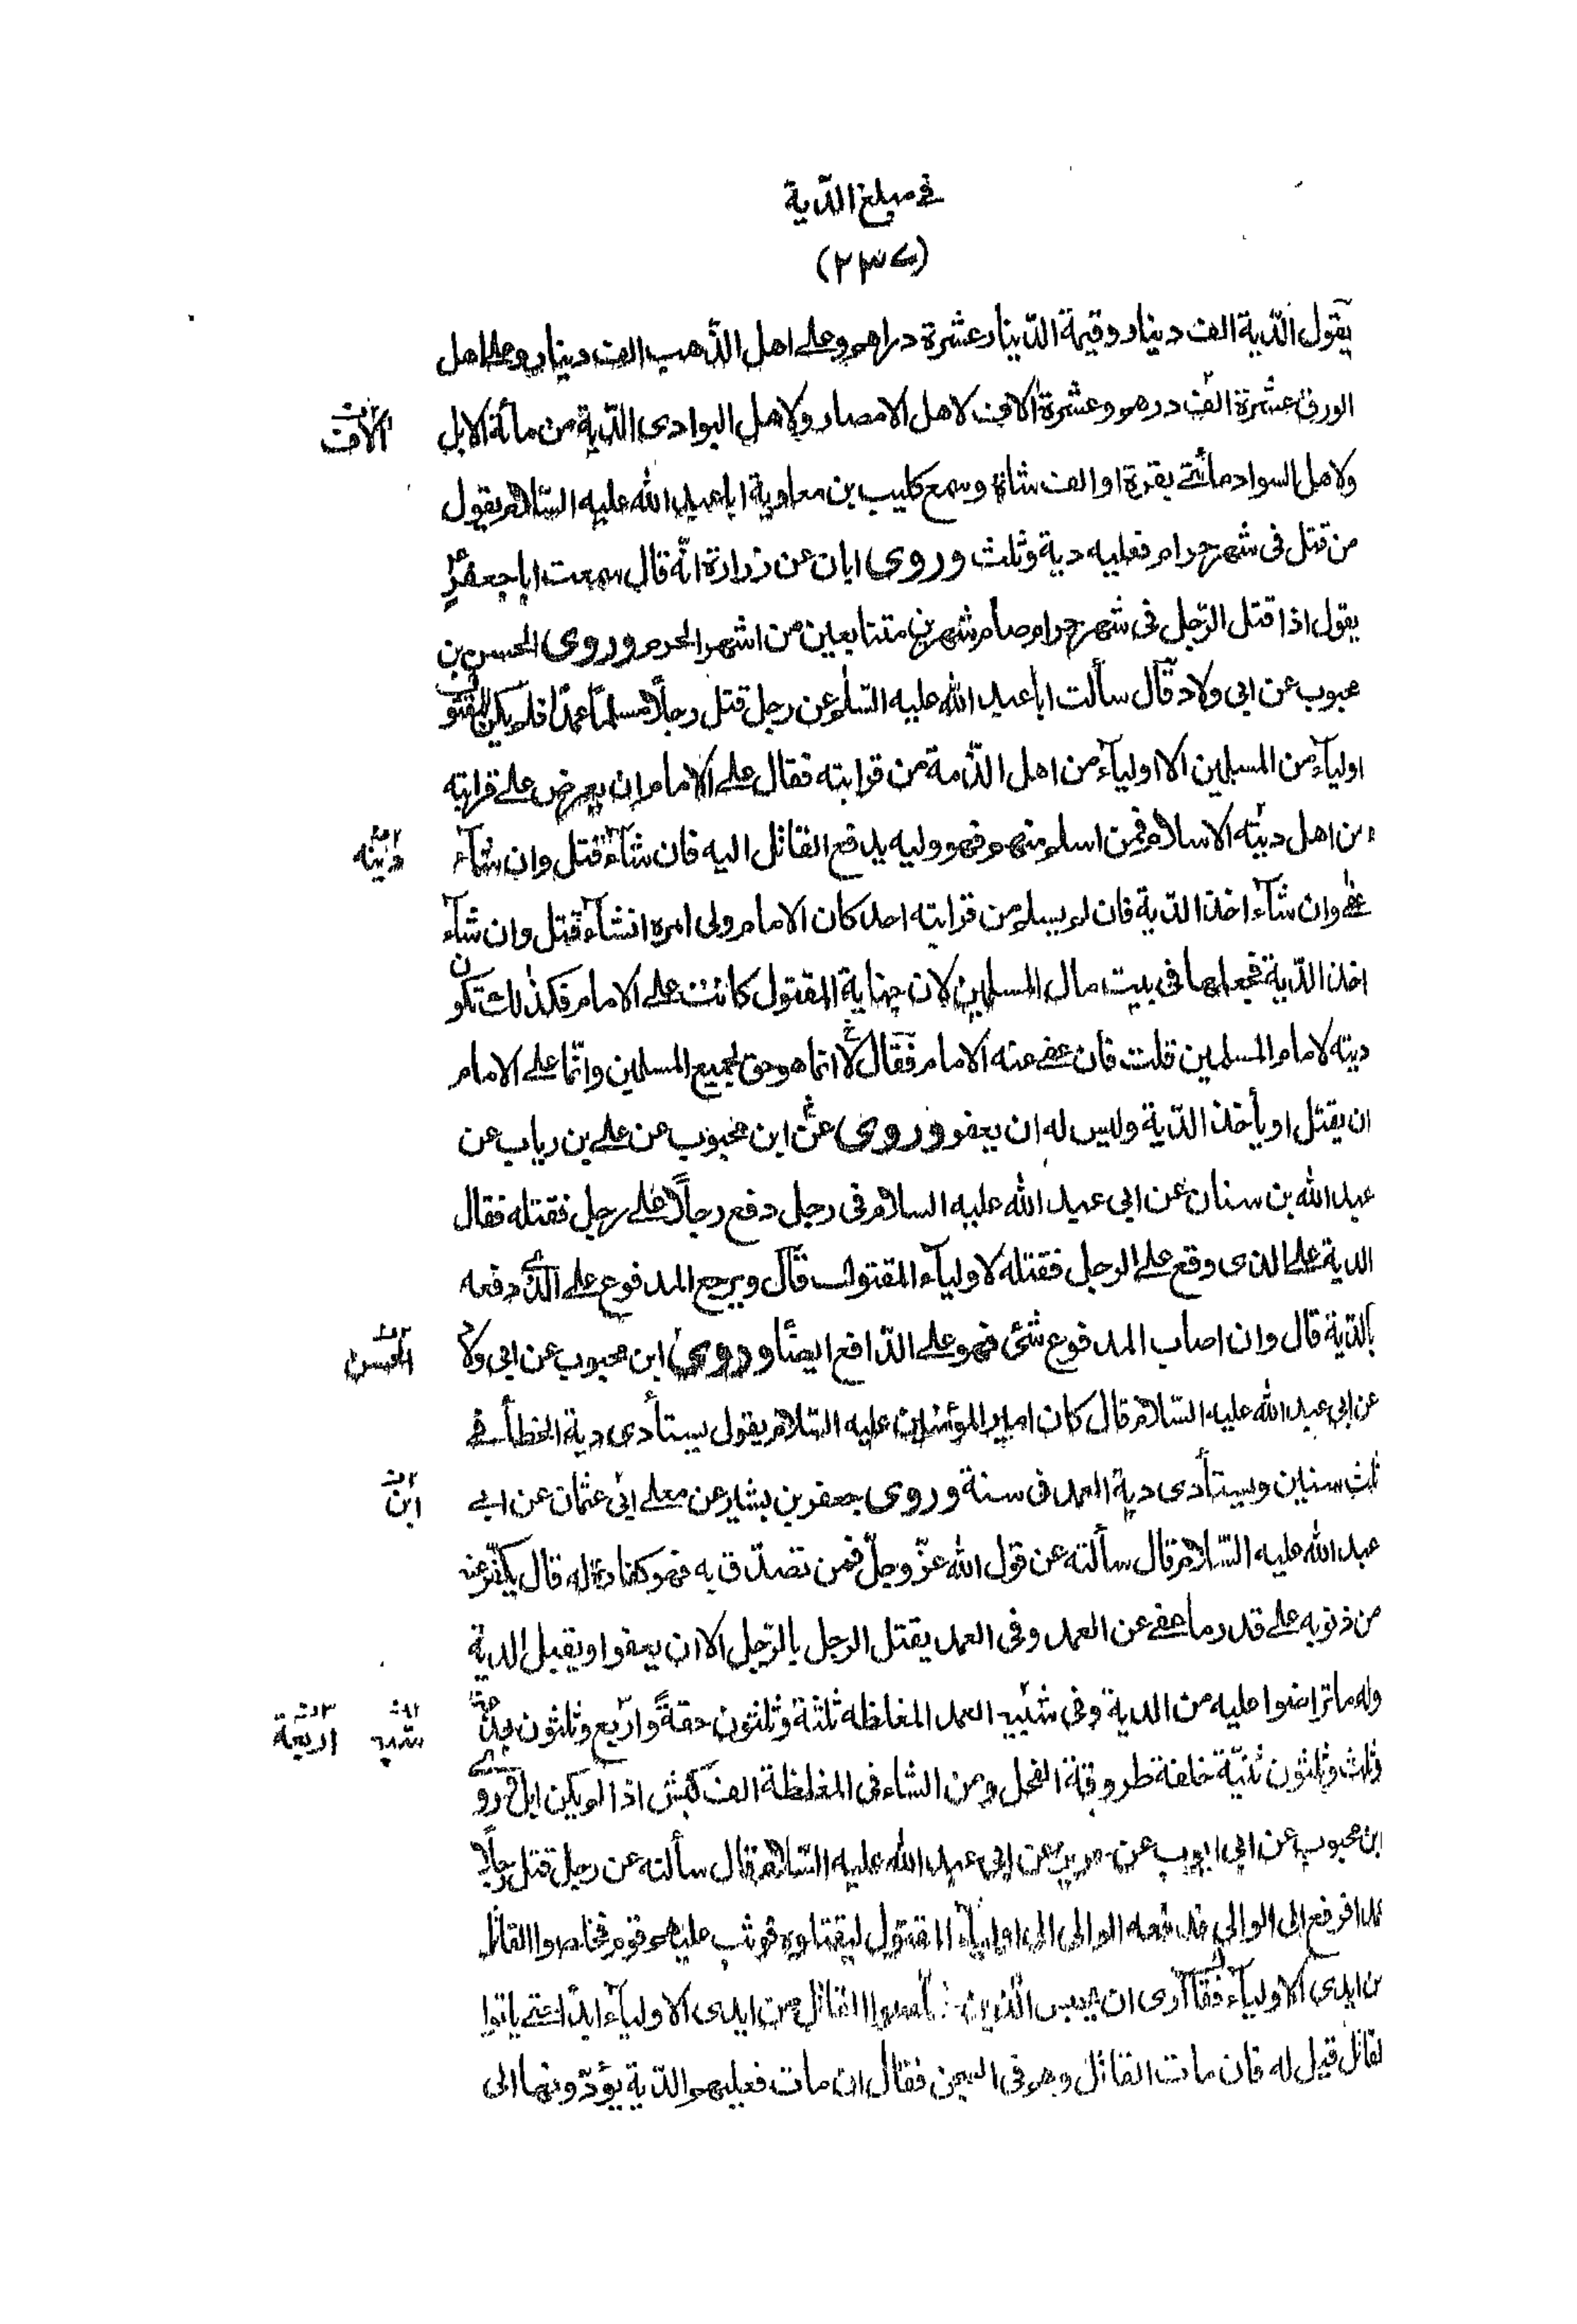 في مبلغ الدّية
(٢٣٧)
يقول الدّية الف دينار وقيمة الدّينار عشرة دراهم وعلى اهل الذّهب الف دينار وعلى اهل
الورق عشرة الف درهم وعشرة الاف لاهل الامصار ولاهل البوادى الدّية من مائة الابل
الاف
ولاهل السواد مائتى بقرة او الف شاة وسمع كليب بن معاوية ابا عبد الله عليه السّلام يقول
من قتل فى شهر حرام فعليه دية وثلث وروى ابان عن زرارة انّه قال سمعت ابا جعفرٍ ع
يقول اذا قتل الرّجل فى شهر حرام صام شهرين متتابعين من اشهر الحرم وروى الحسن بن
محبوب عن ابى ولاد قال سألت ابا عبد الله عليه السّلم عن رجل قتل رجلًا مسلمًا عمدًا فلم يكن للمقتول
اوليآء من المسلمين الا اوليآء من اهل الذّمة من قرابته فقال على الامام ان يعرض على قرابته
من اهل ديته الاسلام فمن اسلم منهم فهو وليه يدفع القاتل اليه فان شآء قتل وان شآء
دينه
عفى وان شآء اخذ الدّية فان لم يسلم من قرابته احد كان الامام ولى امره انشآء قتل وان شآء
اخذ الدّية فجعلها فى بيت مال المسلمين لان جناية المقتول كانت على الامام فكذلك تكون
ديته لامام المسلمين قلت فان عفى عنه الامام فقال لا انما هو حق لجميع المسلمين وانّما على الامام
ان يقتل او يأخذ الدّية وليس له ان يعفو وروى عن ابن محبوب عن على بن رياب عن
عبد الله بن سنان عن ابى عبد الله عليه السلام فى رجل دفع رجلًا على رجل فقتله فقال
الدية على الذى وقع على الرجل فقتله لاوليآء المقتول قال ويرجع المدفوع على الذى دفعه
بالدّية قال وان اصاب المدفوع شئ فهو على الدّافع ايضًا وروى ابن محبوب عن ابى ولاد
الحسن
عن ابى عبد الله عليه السّلام قال كان امير المؤمنين عليه السّلام يقول يستأدى دية الخطأ فى
ثلث سنين ويستأدى دية العمد فى سنة وروى جعفر بن بشير عن معلى ابى عثمان عن ابى
ابن
عبد الله عليه السّلام قال سألته عن قول الله عزّ وجلّ فمن تصدّق به فهو كفارة له قال يكفّر عنه
من ذنوبه على قدر ما عفى عن العمد وفى العمد يقتل الرجل بالرّجل الا ان يعفوا ويقبل الدية
وله ما تراضوا عليه من الدية وفى شبيه العمد المغلظه ثلثة وثلثون حقةً واربع وثلثون جذعة
شبه
اربعة
وثلث وثلثون ثنيّة خلفة طروقة الفحل ومن الشاء فى المغلظة الف كبش اذا لم يكن ابل وروى
ابن محبوب عن ابى ايوب عن حريز عن ابى عبد الله عليه السّلام قال سألته عن رجل قتل رجلًا
عمدا فرفع الى الوالى فدفعه الوالى الى اوليآء المقتول ليقتلوه فوثب عليهم قوم فخلصوا القاتل
من ايدى الاوليآء فقال ارى ان يحبس الّذين خلصوا القاتل من ايدى الاوليآء ابدًا حتى ياتوا
لقاتل قيل له فان مات القاتل وهو فى السجن فقال ان مات فعليهم الدّية يؤدّونها الى